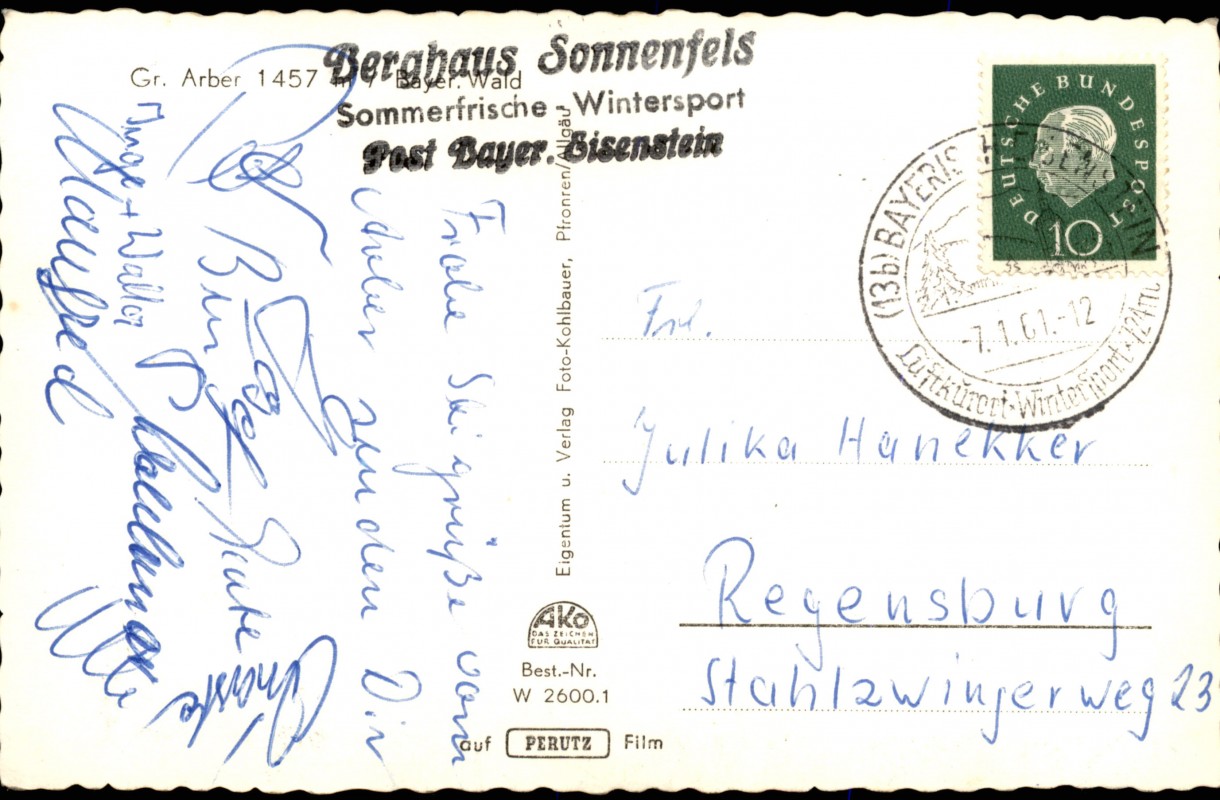 Gr. Arber 1457 m / Bayer. Wald
Berghaus Sonnenfels
Sommerfrische - Wintersport
Post Bayer. Eisenstein
Frohe Skigrüße vom
Arber senden Dir
Birgel
Käte
Inge + Walter
Manfred
Ute
Eigentum u. Verlag Foto-Kohlbauer, Pfronren/Allgäu
AKo
DAS ZEICHEN
FÜR QUALITÄT
Best.-Nr.
W 2600.1
auf PERUTZ Film
DEUTSCHE BUNDESPOST
10
(13b) BAYERISCH EISENSTEIN
-7.1.61.-12
Luftkurort-Wintersport · 724m
Frl.
Julika Hanekker
Regensburg
Stahlzwingerweg 23